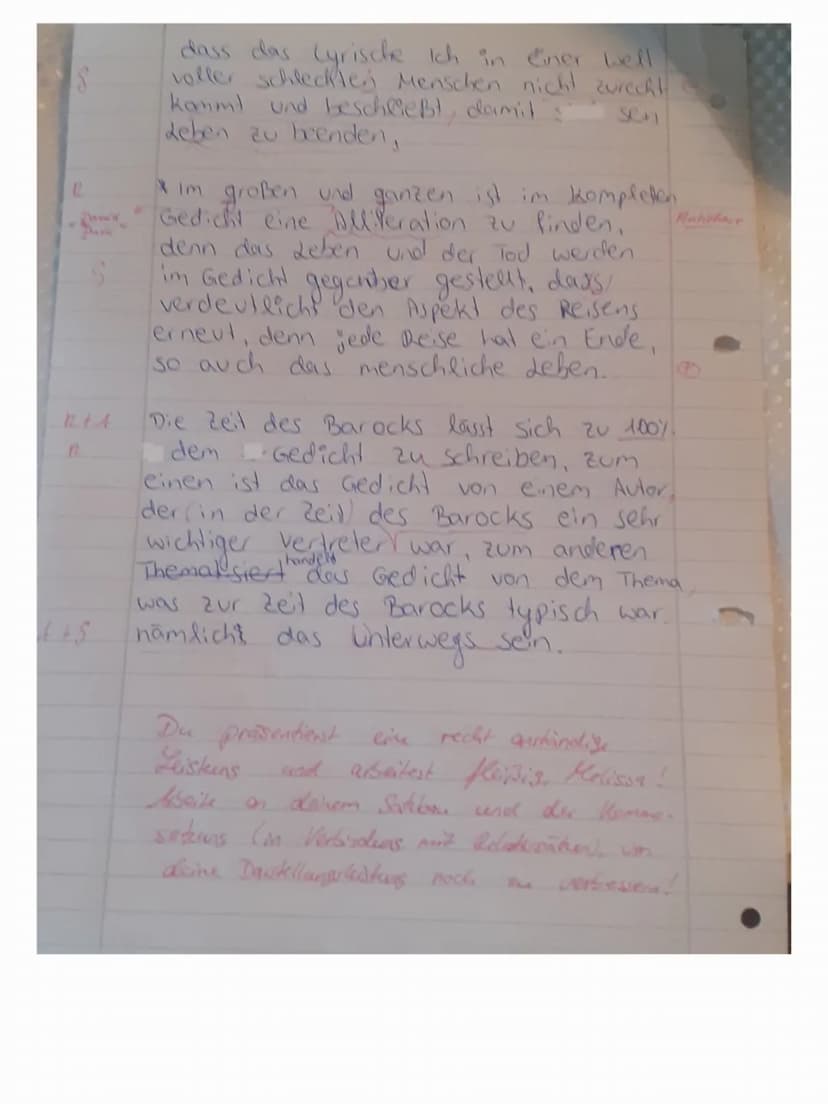 dass das Lyrische Ich in einer Welt
S voller schlechten Menschen nicht zurecht
kommt und beschließt, damit sein
Leben zu beenden,
R * Im großen und ganzen ist im kompletten
Gedicht eine Alliteration zu finden,
denn das Leben und der Tod werden
S im Gedicht gegenüber gestellt, dass
verdeutlicht den Aspekt des Reisens
erneut, denn jede Reise hat ein Ende,
so auch das menschliche Leben.
R + A Die Zeit des Barocks lässt sich zu 100%
R dem Gedicht zu schreiben, zum
einen ist das Gedicht von einem Autor,
der (in der Zeit) des Barocks ein sehr
wichtiger Vertreter war, zum anderen
handelt
Thematisiert das Gedicht von dem Thema,
was zur Zeit des Barocks typisch war
nämlicht das Unterwegs sein.
Du präsentierst eine recht
Leistung und arbeitest fleißig, Melissa!
Arbeite an deinem Satzbau und der Komma-
setzung (in Verbindung mit Relativsätzen), um
deine Darstellungsleistung noch zu verbessern!